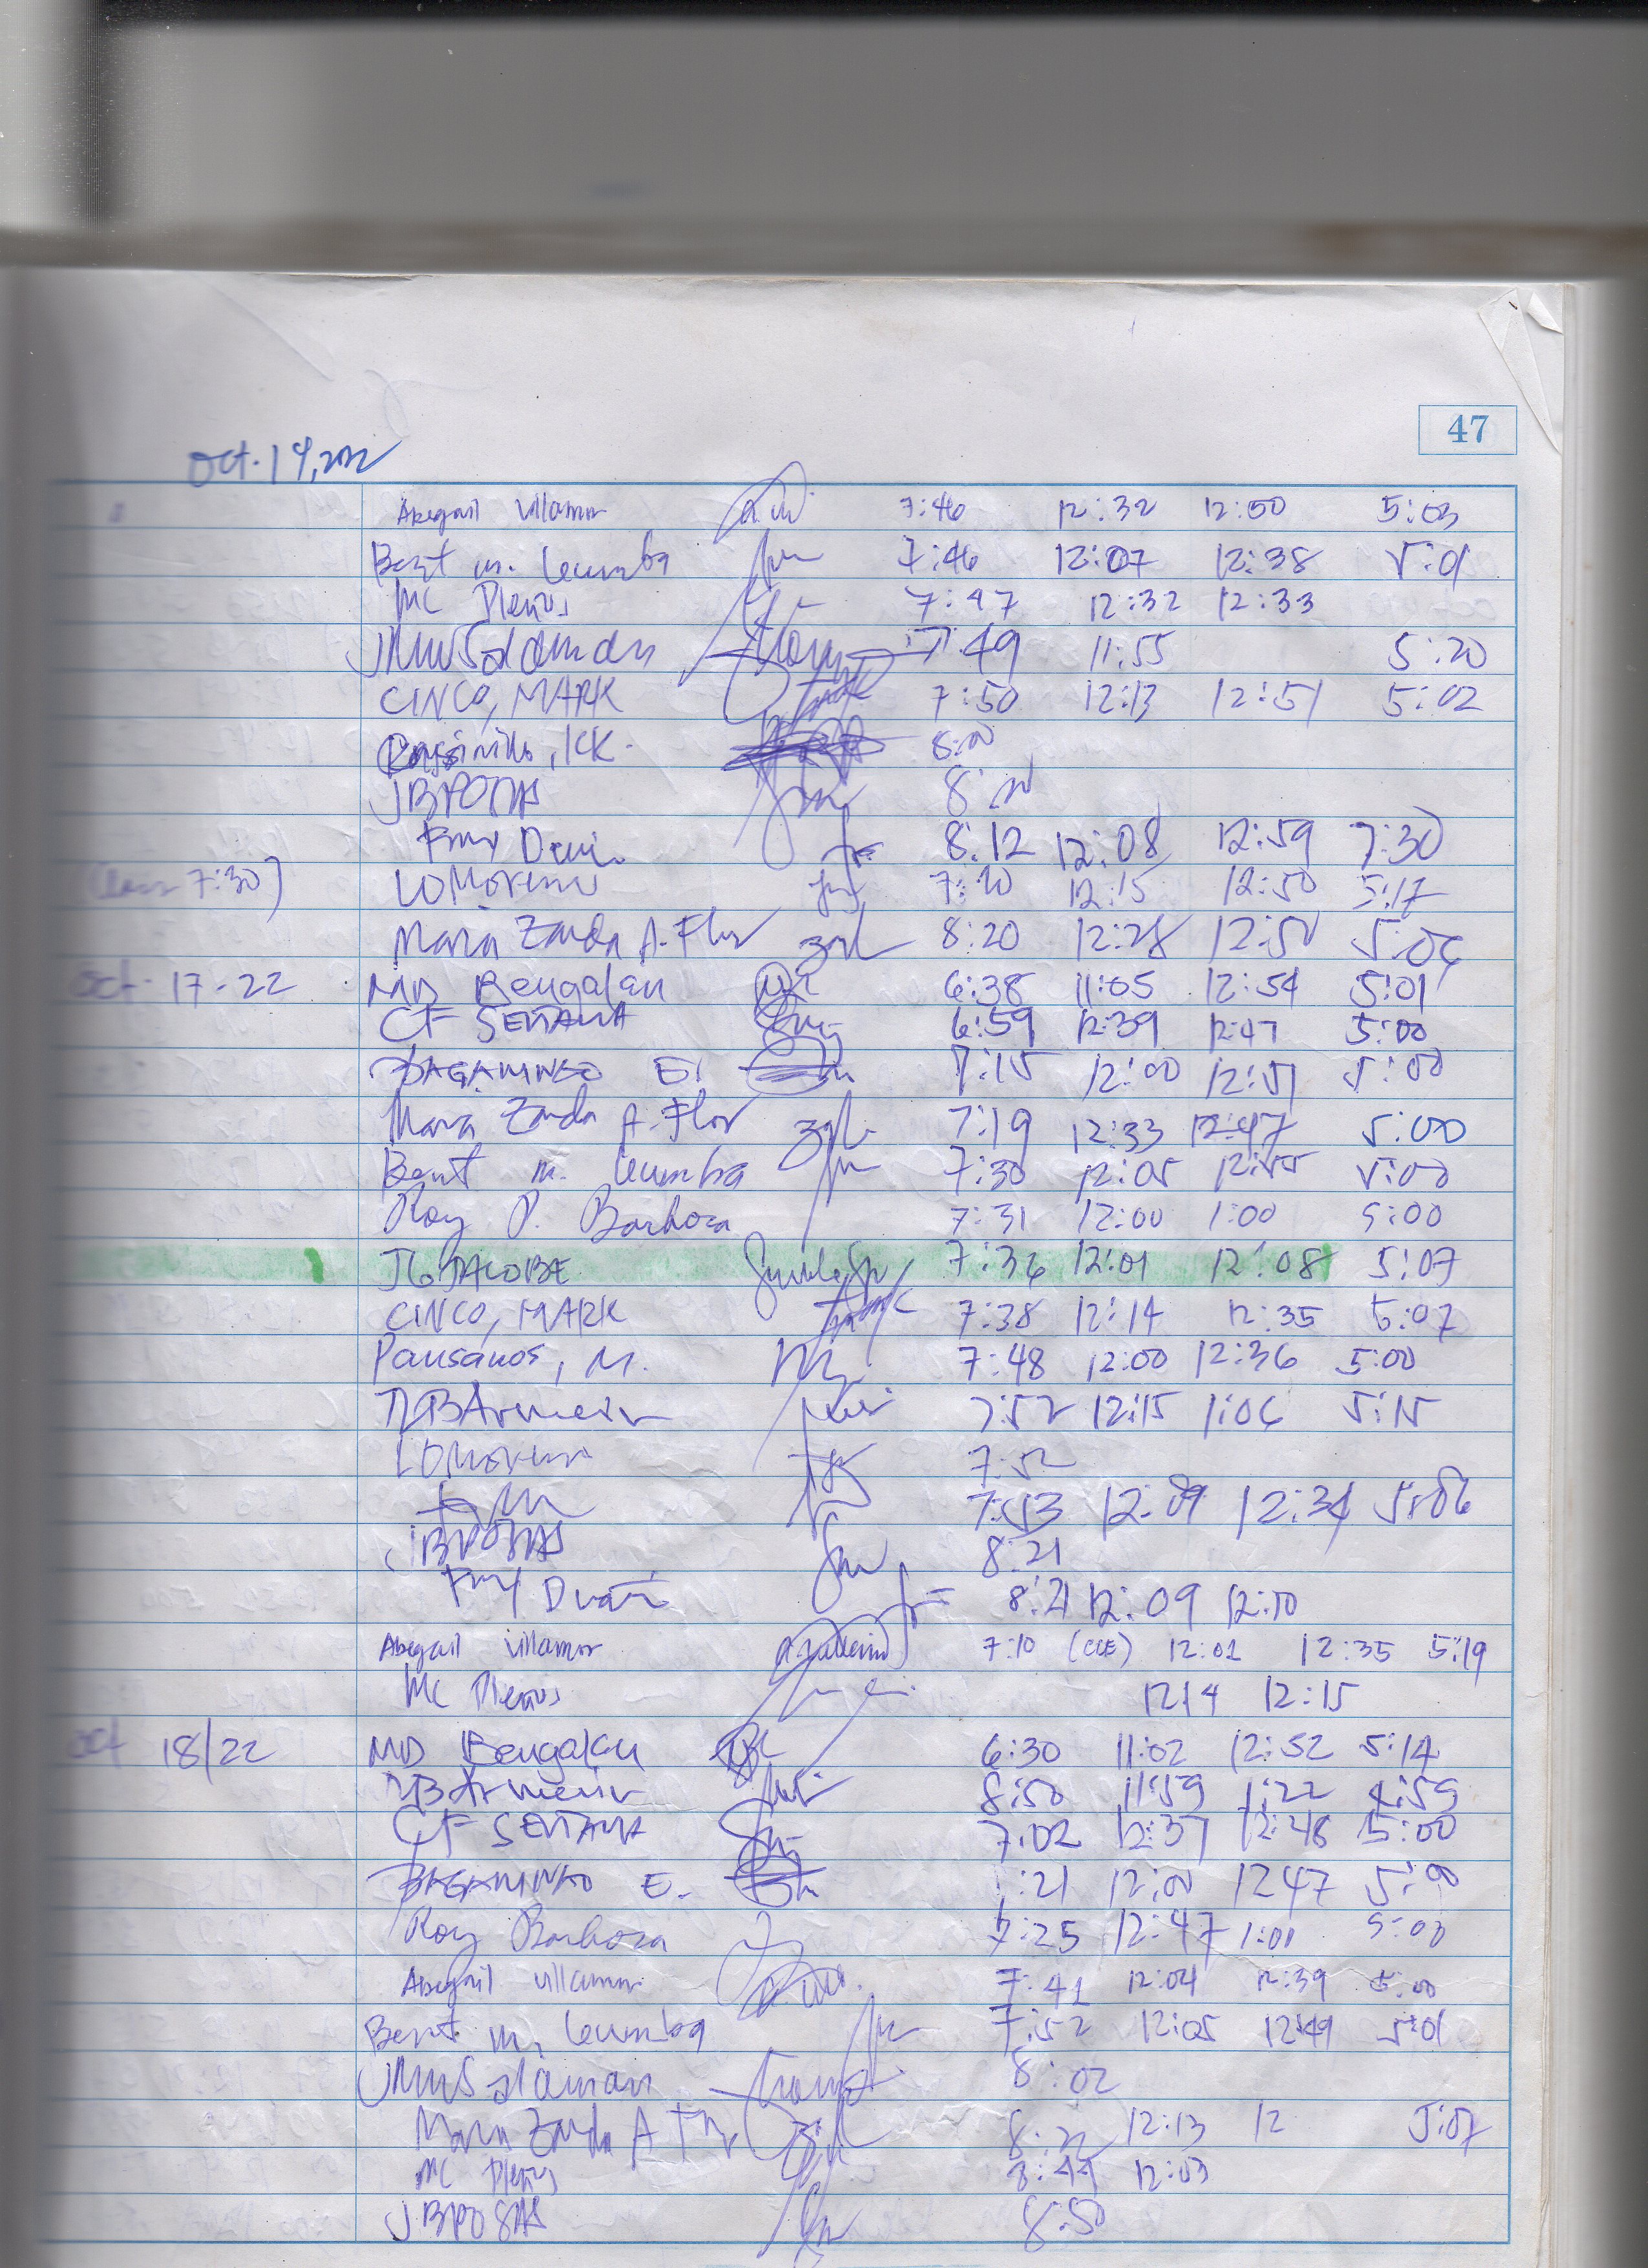 47
Oct. 14, 2022
Abegail Villamor 7:46 12:32 12:50 5:03
Bent m. 7:46 12:07 12:38 5:01
MC Plenos 7:47 12:32 12:33
JMWSalaman 7:49 11:55 5:20
CINCO, MARK 7:50 12:13 12:51 5:02
, KK. 8:00
JBPOSAS 8:20
8:12 12:08 12:59 7:30
7:30) LOMoreno 7:20 12:15 12:50 5:17
Maria Zanda A. Flor 8:20 12:28 12:50 5:06
Oct. 17-22 MD Bengalan 6:38 11:05 12:54 5:01
CF SENTANA 6:59 12:39 12:47 5:00
BAGAMNSO E. 7:15 12:00 12:51 5:00
Maria Zanda A. Flor 7:19 12:33 12:47 5:00
Bent m. 7:30 12:05 12:55 5:00
Roy P. Barboza 7:31 12:00 1:00 5:00
JGJACOBE 7:36 12:01 12:08 5:07
CINCO, MARK 7:38 12:14 12:35 5:07
Pausanos, M. 7:48 12:00 12:36 5:00
7:52 12:15 1:06 5:15
LOMoreno 7:52
7:53 12:09 12:34 5:06
JBPOSAS 8:21
8:21 12:09 12:10
Abegail Villamor 7:10 (CCE) 12:01 12:35 5:19
MC Plenos 1214 12:15
Oct 18/22 MD Bengalan 6:30 11:02 12:52 5:14
8:50 11:59 1:22 4:59
CF SENTANA 7:02 12:37 12:48 5:00
BAGAMNSO E. :21 12:00 1247 5:00
Roy Barboza 7:25 12:47 1:00 5:00
Abegail Villamor 7:41 12:04 12:39 5:00
Bent m. 7:52 12:05 12:49 5:01
JMWSalaman 8:02
Maria Zanda A Flor 8:22 12:13 12 5:07
MC Plenos 8:44 12:03
JBPOSAS 8:50